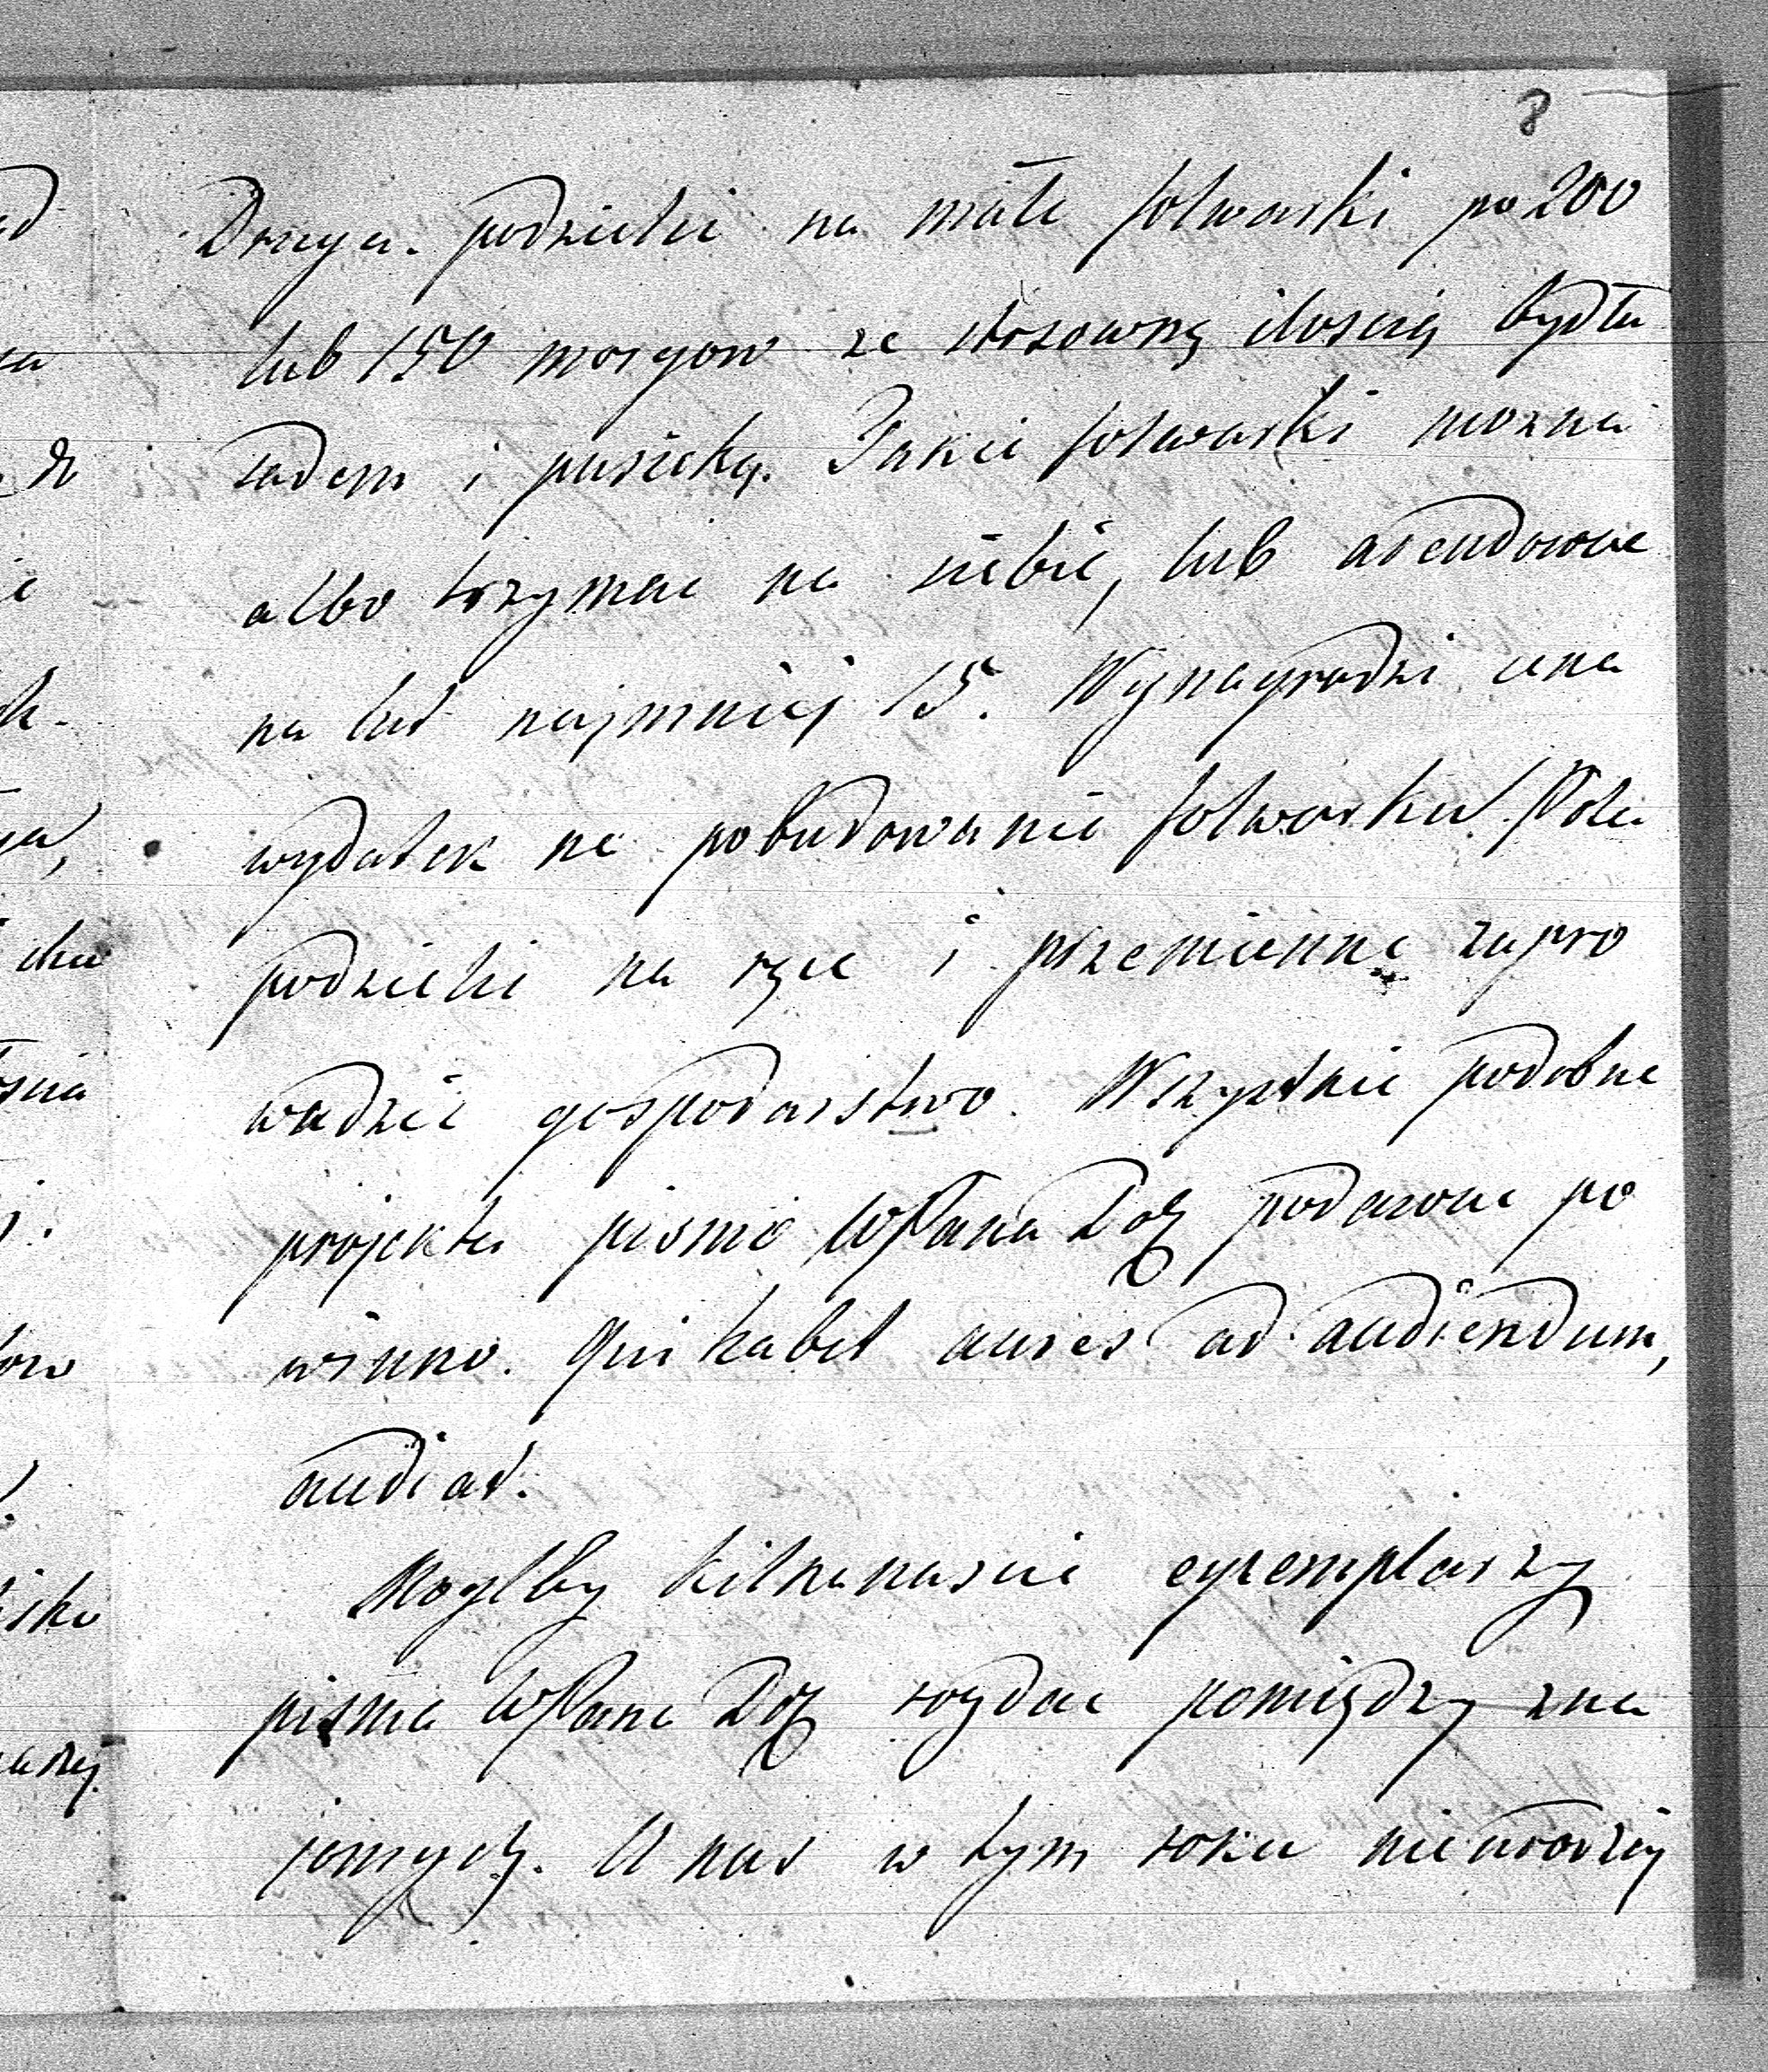 8
Druga. podzielic na małe folwarki po 200
lub 150 morgow ze stosowną iloscią bydła
sadem i pasieką. Takie folwarki mozna
albo trzymac na siebie, lub arendowac
na lat najmniej 15. Wynagrodzi cena
wydatek na pobudowanie folwarku. Pola
podzielic na ręce i przemienne zapro
wadzić gospodarstwo. Wszystkie podobne
projekta pismo WPana Dob podawac po
winno. Qui habet aures ad audiendum,
audiat.
Moglby kilkanascie exemplarzy
pisma WPana Dob rozdac pomiędzy zna
jomych. U nas w tym roku nieurodzaj